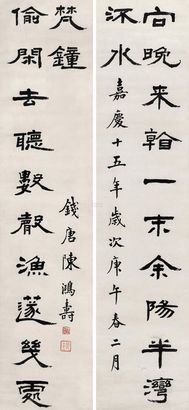 向晚来看一末余陽半灣
水
嘉慶十五年歲次庚午春二月
偷閑去聽數聲漁篴幾處
梵鐘
錢唐陳鴻壽